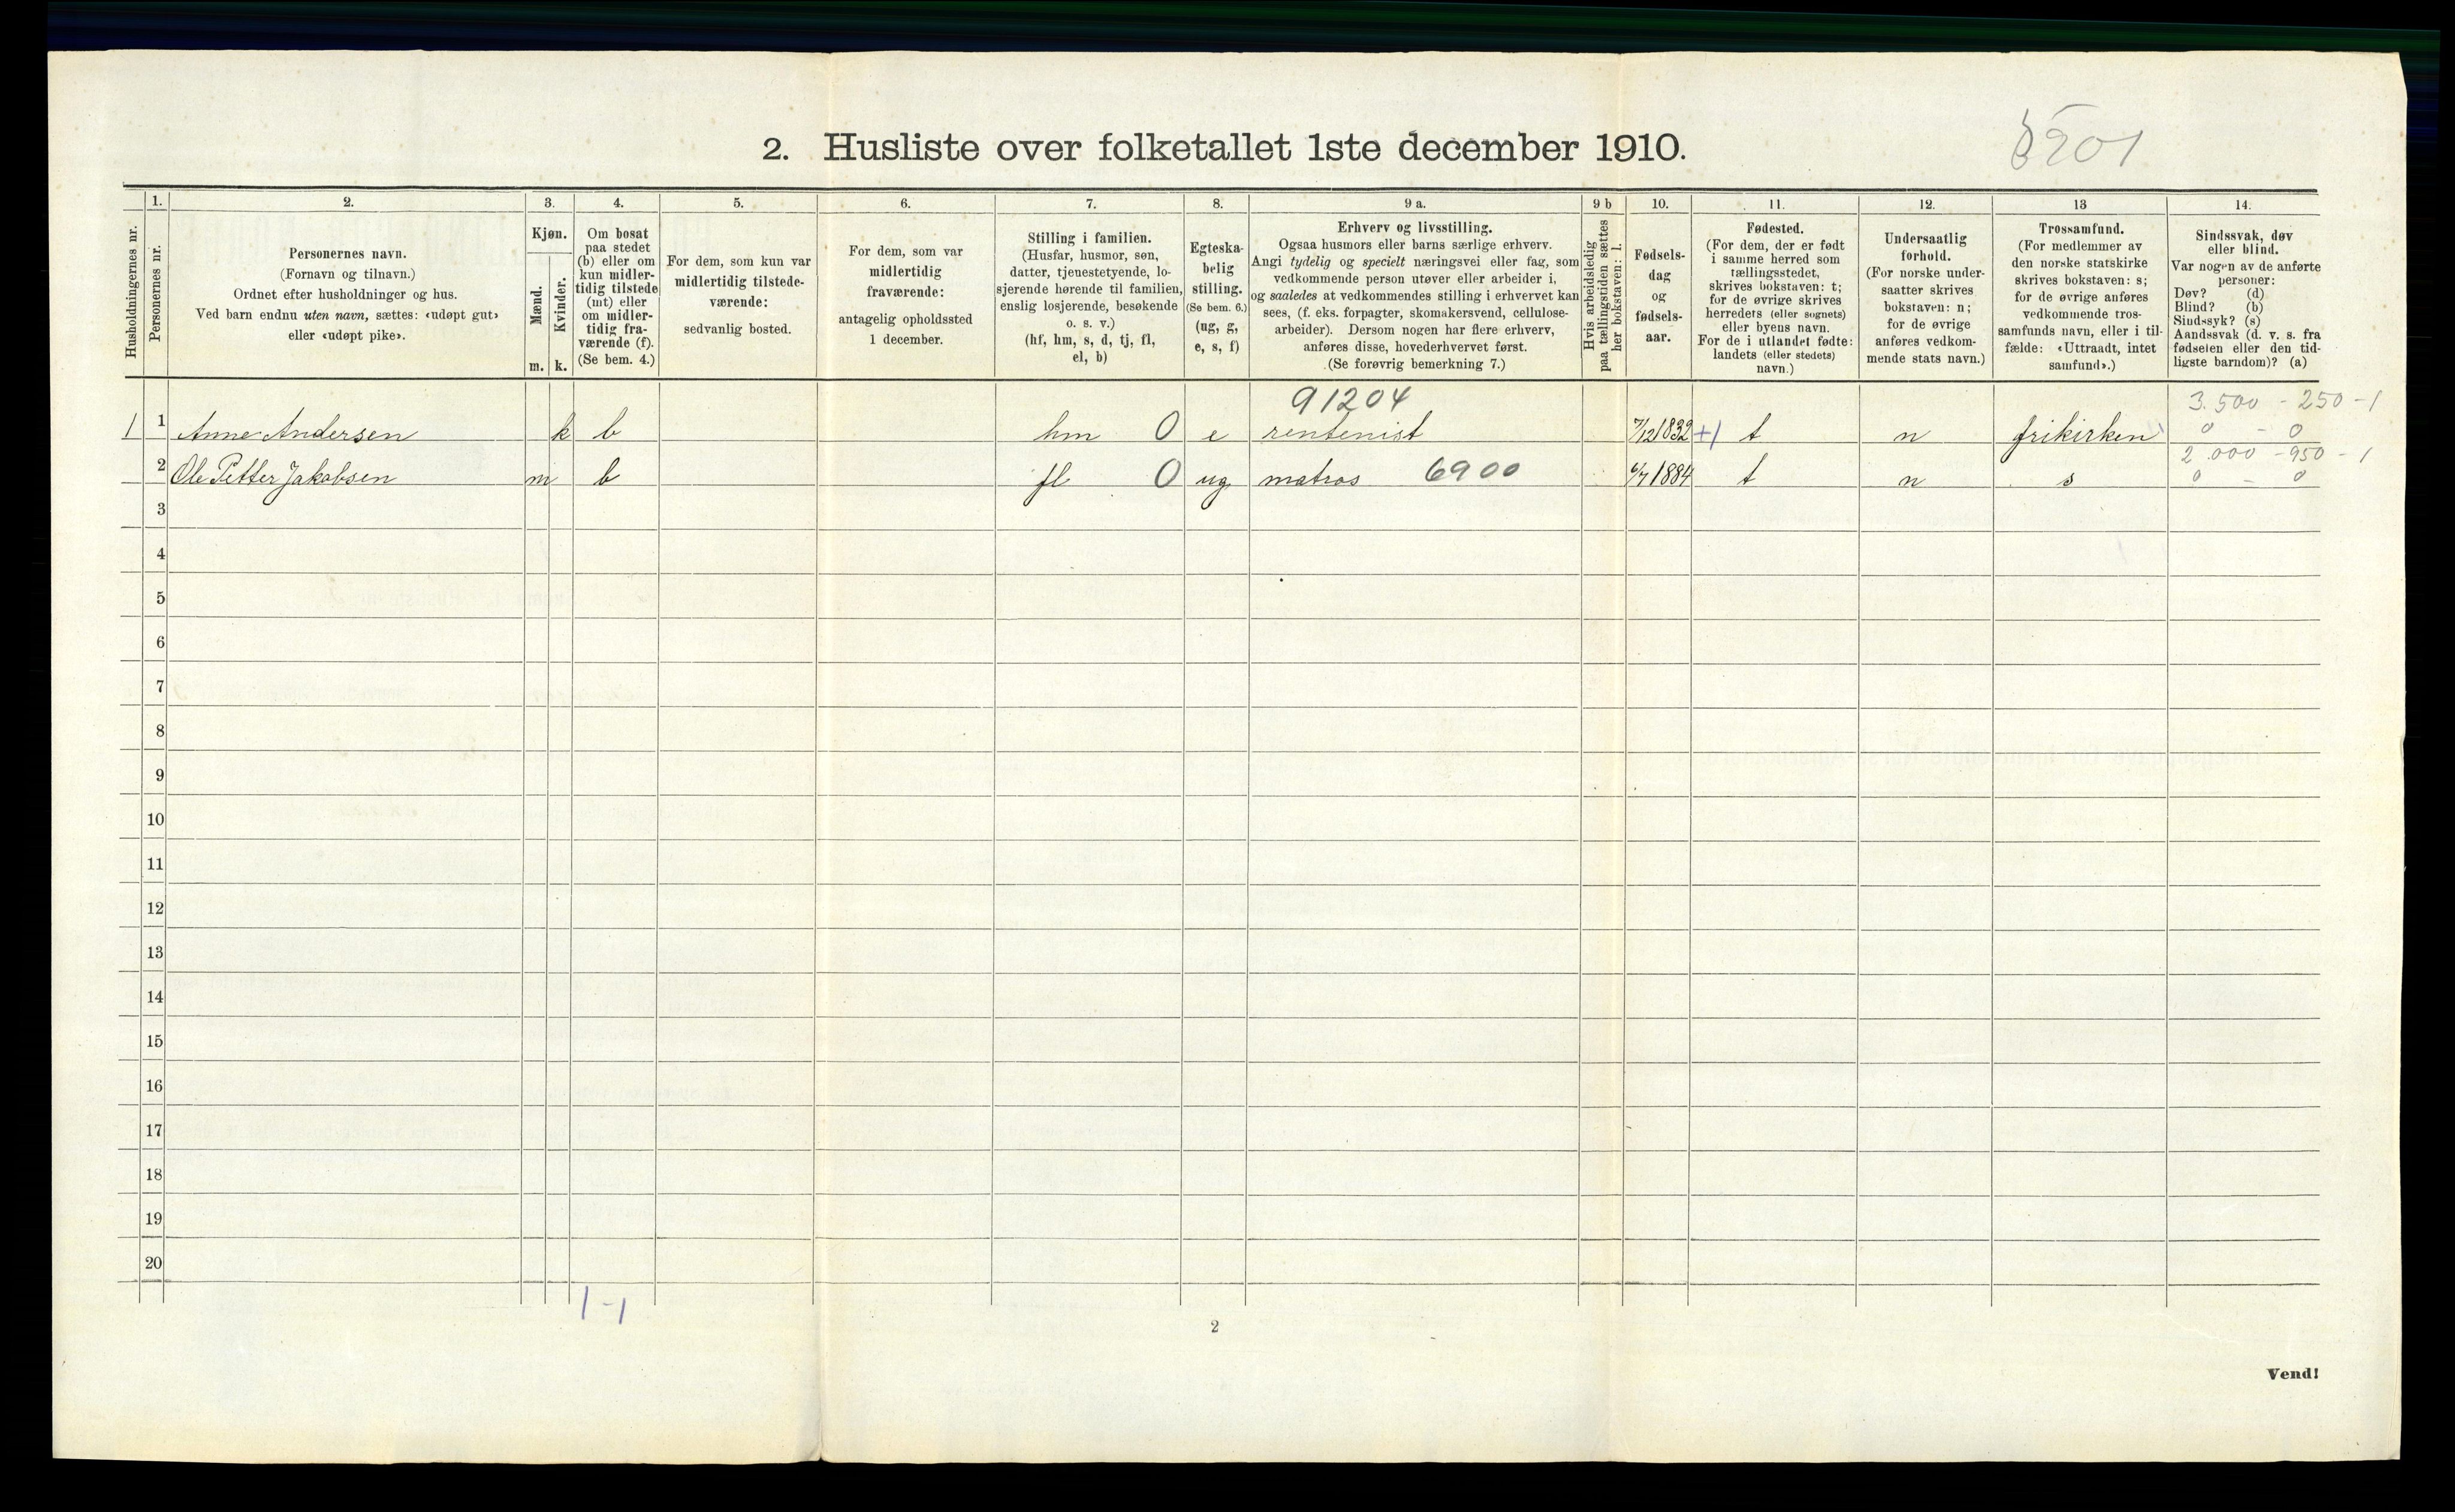 2. Husliste over folketallet 1ste december 1910.
Husholdningernes nr.
1.
Personernes nr.
2.
Personernes navn.
(Fornavn og tilnavn.)
Ordnet efter husholdninger og hus.
Ved barn endnu uten navn, sættes: «udøpt gut»
eller «udøpt pike».
3.
Kjøn.
Mænd.
Kvinder.
m. k.
4.
Om bosat
paa stedet
(b) eller om
kun midler-
tidig tilstede
(mt) eller
om midler-
tidig fra-
værende (f).
(Se bem. 4.)
5.
For dem, som kun var
midlertidig tilstede-
værende:
sedvanlig bosted.
6.
For dem, som var
midlertidig
fraværende:
antagelig opholdssted
1 december.
7.
Stilling i familien.
(Husfar, husmor, søn,
datter, tjenestetyende, lo-
sjerende hørende til familien,
enslig losjerende, besøkende
o. s. v.)
(hf, hm, s, d, tj, fl,
el, b)
8.
Egteska-
belig
stilling.
(Se bem. 6.)
(ug, g,
e, s, f)
9 a.
Erhverv og livsstilling.
Ogsaa husmors eller barns særlige erhverv.
Angi tydelig og specielt næringsvei eller fag, som
vedkommende person utøver eller arbeider i,
og saaledes at vedkommendes stilling i erhvervet kan
sees, (f. eks. forpagter, skomakersvend, cellulose-
arbeider). Dersom nogen har flere erhverv,
anføres disse, hovederhvervet først.
(Se forøvrig bemerkning 7.)
9 b
Hvis arbeidsledig
paa tællingstiden sættes
her bokstaven: l.
10.
Fødsels-
dag
og
fødsels-
aar.
11.
Fødested.
(For dem, der er født
i samme herred som
tællingsstedet,
skrives bokstaven: t;
for de øvrige skrives
herredets (eller sognets)
eller byens navn.
For de i utlandet fødte:
landets (eller stedets)
navn.)
12.
Undersaatlig
forhold.
(For norske under-
saatter skrives
bokstaven: n;
for de øvrige
anføres vedkom-
mende stats navn.)
13
Trossamfund.
(For medlemmer av
den norske statskirke
skrives bokstaven: s;
for de øvrige anføres
vedkommende tros-
samfunds navn, eller i til-
fælde: «Uttraadt, intet
samfund».)
14.
Sindssvak, døv
eller blind.
Var nogen av de anførte
personer:
Døv? (d)
Blind? (b)
Sindssyk? (s)
Aandssvak (d. v. s. fra
fødselen eller den tid-
ligste barndom)? (a)
91204 3.500 - 250 - 1
1 1 Anne Andersen k b hm 0 e rentenist 7/12 1832 +1 t n frikirken 0 - 0
2.000 - 950 - 1
2 Ole Petter Jakobsen m b fl 0 ug matros 6900 6/7 1884 t n s 0 - 0
3
4
5
6
7
8
9
10
11
12
13
14
15
16
17
18
19
20
1 - 1
2
Vend!